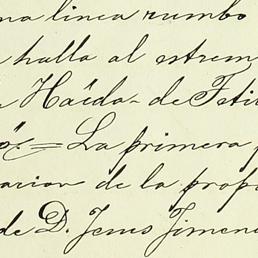 na linea rumbo
halla al estrem
Haida- de Fiti
La primera p
acion de la propi
de D. Jesus Jimen